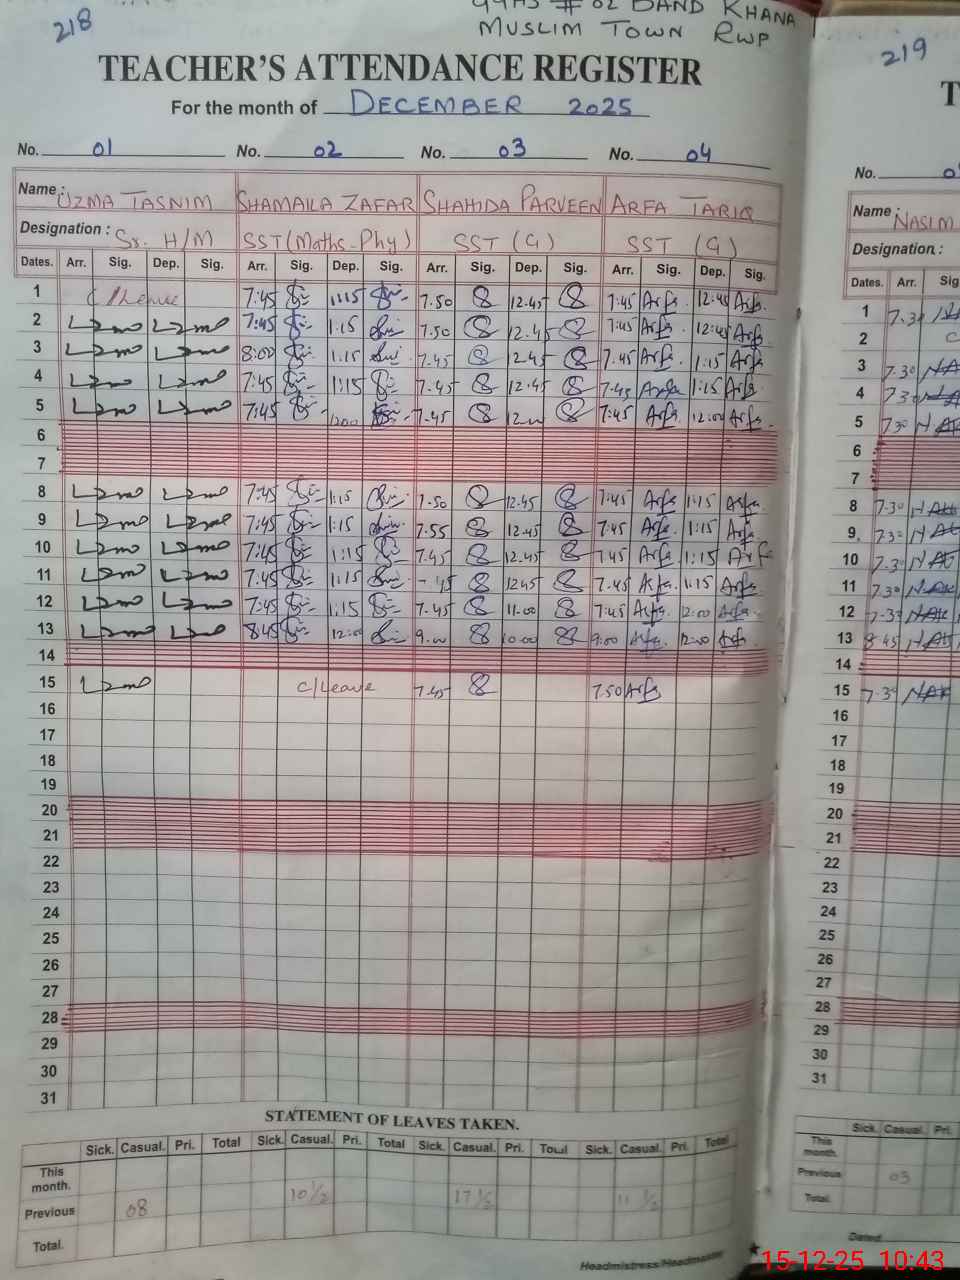 218
GGHS # 02 DAND KHANA
MUSLIM TOWN RWP
TEACHER'S ATTENDANCE REGISTER
For the month of DECEMBER 2025
No. 01 No. 02 No. 03 No. 04
Name : UZMA TASNIM SHAMAILA ZAFAR SHAHIDA PARVEEN ARFA TARIQ
Designation : Sr. H/M SST (Maths-Phy) SST (G) SST (G)
Dates. Arr. Sig. Dep. Sig. Arr. Sig. Dep. Sig. Arr. Sig. Dep. Sig. Arr. Sig. Dep. Sig.
1 C/Leave 7:45 1:15 7.50 12.45 7:45 Arfa 12:45 Arfa
2 7:45 1:15 7.50 12.45 7:45 Arfa 12:45 Arfa
3 8:00 1:15 7.45 12.45 7.45 Arfa 1:15 Arfa
4 7:45 1:15 7.45 12.45 7.45 Arfa 1:15 Arfa
5 7:45 12:00 7.45 7:45 Arfa 12:00 Arfa
6
7
8 7:45 1:15 7.50 12.45 7:45 Arfa 1:15 Arfa
9 7:45 1:15 7.55 12.45 7:45 Arfa 1:15 Arfa
10 7:45 1:15 7.45 12.45 7:45 Arfa 1:15 Arfa
11 7:45 1:15 12.45 7.45 Arfa 1:15 Arfa
12 7:45 1:15 7.45 11.00 7:45 Arfa 12:00 Arfa
13 8:45 12:00 9.00 10.00 9:00 Arfa 12:00 Arfa
14
15 C/Leave 7.45 7.50 Arfa
16
17
18
19
20
21
22
23
24
25
26
27
28
29
30
31
STATEMENT OF LEAVES TAKEN.
Sick. Casual. Pri. Total Sick. Casual. Pri. Total Sick. Casual. Pri. Total Sick. Casual. Pri. Total
This month.
Previous 08 10 1/2 17 1/2 11 1/2
Total.
Headmistress/Headmaster
219
T
No.
Name : NASIM
Designation :
Dates. Arr. Sig
1 7.30
2 C
3 7.30
4 7.30
5 7.30
6
7
8 7.30
9 7.30
10 7.30
11 7.30
12 7.30
13 8.45
14
15 7.30
16
17
18
19
20
21
22
23
24
25
26
27
28
29
30
31
Sick. Casual. Pri.
This month.
Previous 05
Total.
Dated
15-12-25 10:43